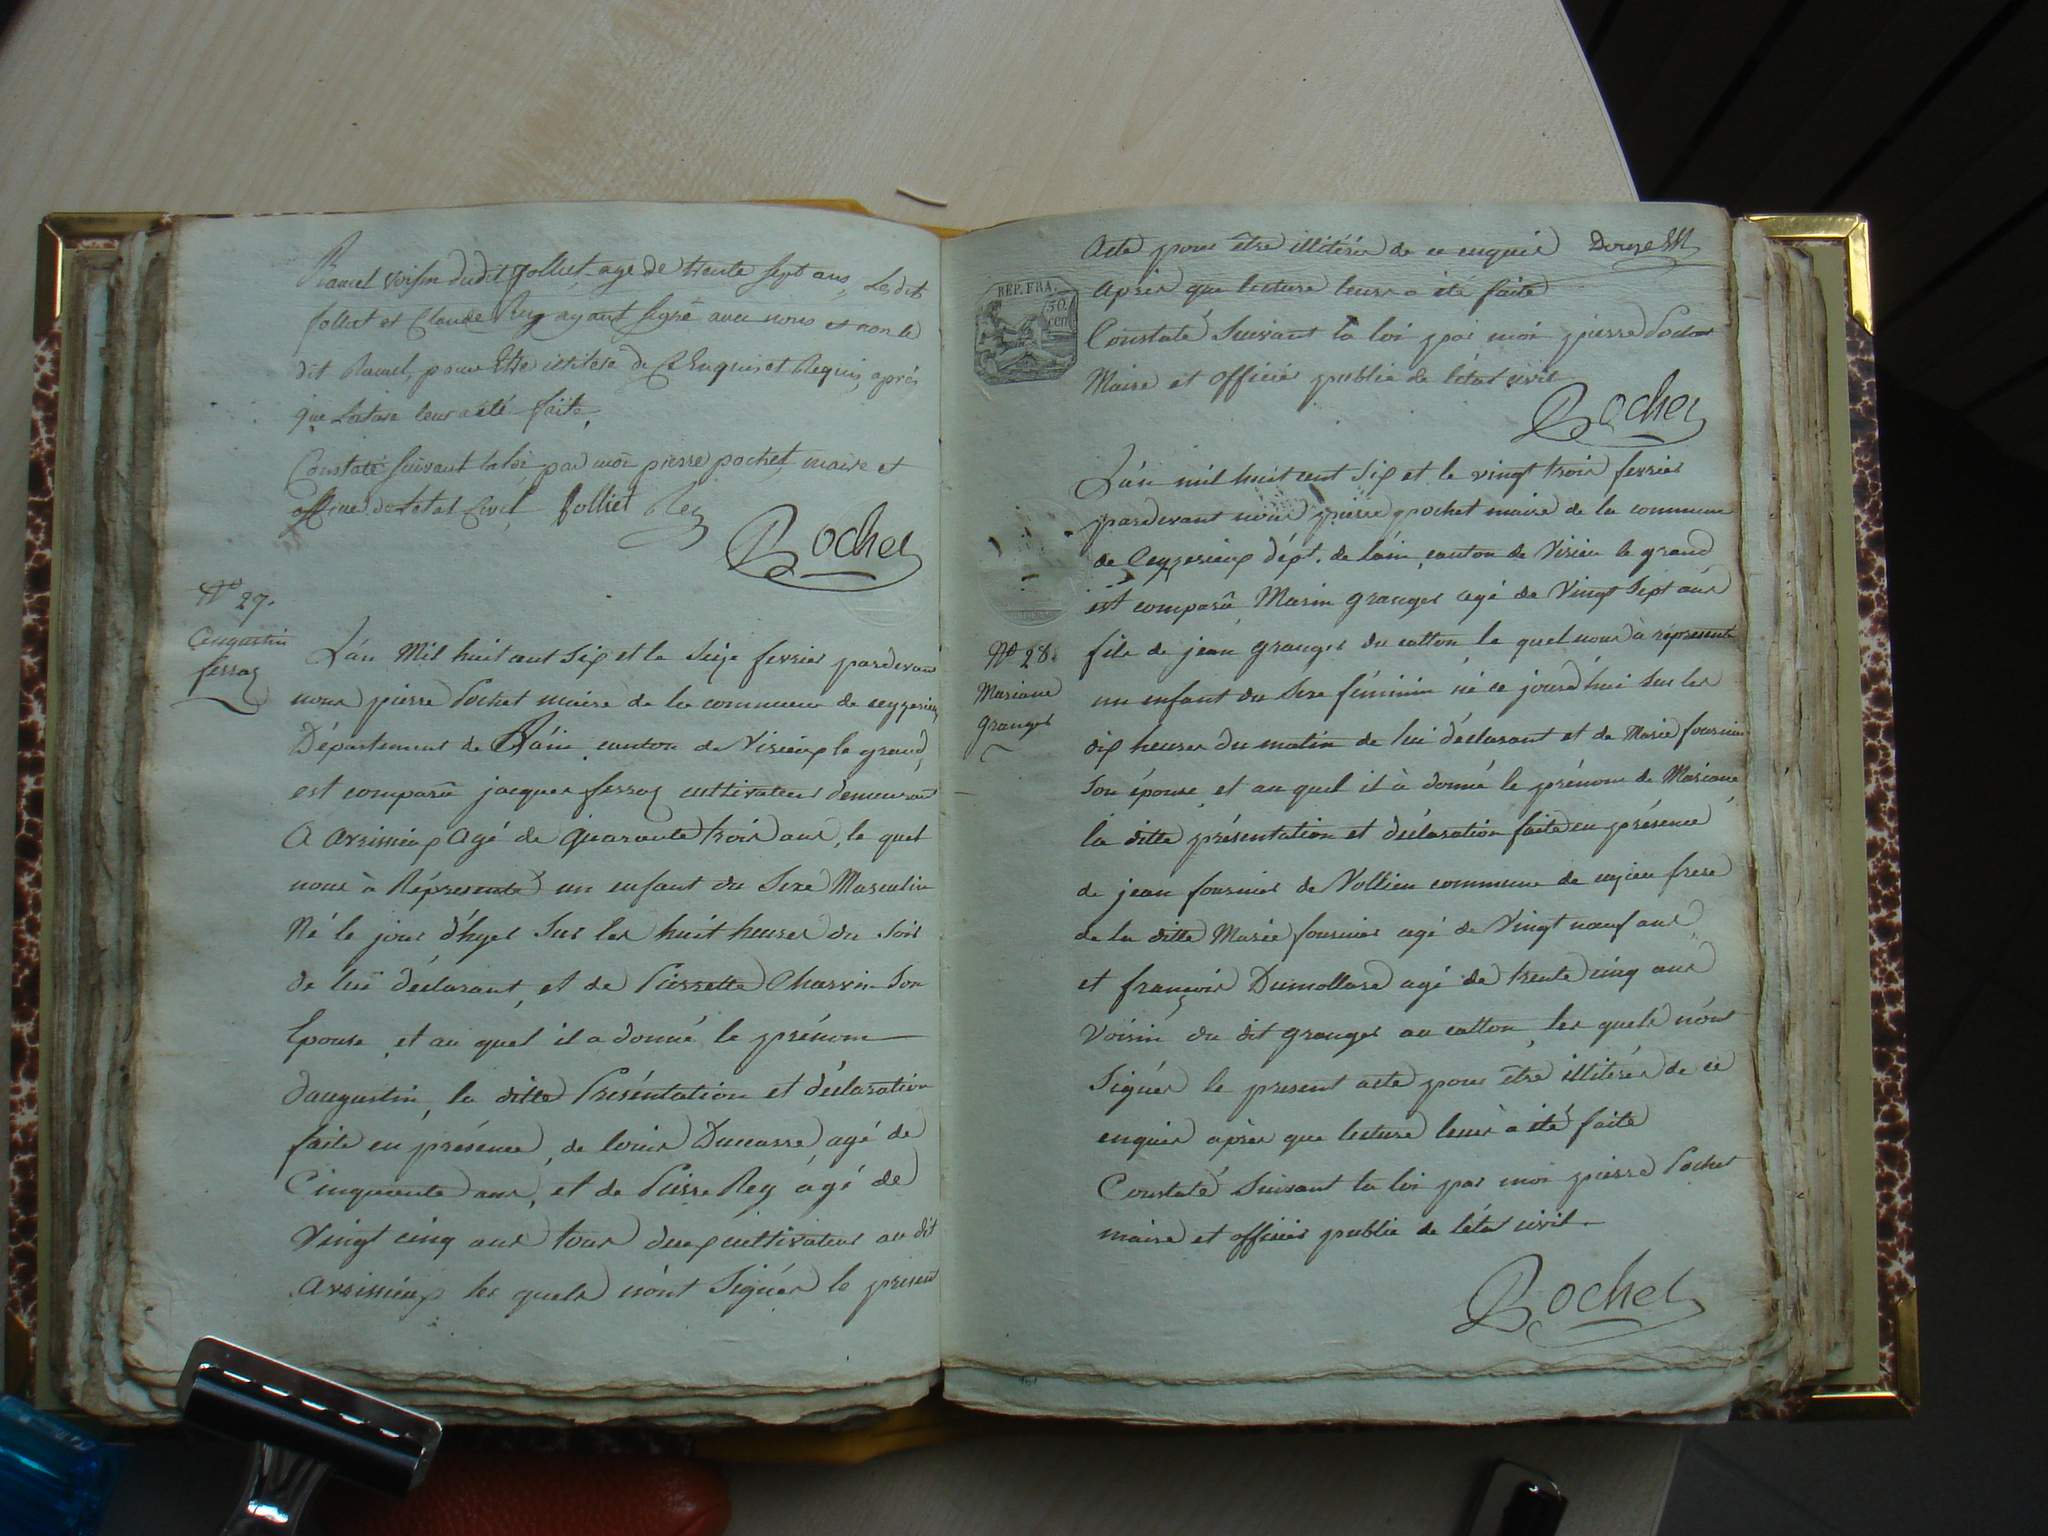 Ravel voisin dudit Jolliet, age de trente sept ans, Lesdits
Jolliet et Claude Rey ayant signé avec nous et non le
dit Ravel, pour Etre illitéré de Ce Enquis et Requis, après
que Lecture leur a été faite,
Constaté suivant la loi par moi pierre pochet, maire et
officier de Letat Civil Jolliet Rey
Pochet
N° 27.
augustin
ferraz
L'án Mil huit cent Six et le Seize fevrier pardevant
nous pierre Pochet maire de la commune de ceyzerieu
Département de L'áin canton de Virieux le grand,
est comparû jacques ferraz cultivateur demeurant
A avrissieux Agé de Quarante trois ans, le quel
nous à Représenté un enfant du Sexe Masculin
Né le jour d'hyer Sur les huit heures du Soir
de lui déclarant, et de Pierrette Charvin Son
Epouse, et au quel il a donné le prénom
daugustin, la ditte Présentation et déclaration
faite en présence, de louis Ducarre, agé de
Cinquante ans, et de Pierre Rey ágé de
Vingt cinq ans tous deux cultivateur au dit
avrissieux les quels n'ont Signér le present
Acte pour être illitérés de ce enquis
Après que lecture leur a été faite
REP. FRA.
50 cen
Constaté Suivant la loi par moi pierre Pochet
Maire et officier public de l'état civil
Pochet
L'án mil huit cent Six et le vingt trois fevrier
pardevant nous pierre pochet maire de la commune
de Ceyzerieux dépt. de l'áin, canton de Virieu le grand
est comparû Marin granger agé de Vingt Sept ans
N° 28.
Mariane
granger
fils de jean granger du catton le quel nous à répresenté
un enfant du Sexe féminin né ce jourd'hui Sur les
dix heures du matin de lui déclarant et de Marie fournier
Son épouse, et au quel il à donné le prénom de Mariane
la ditte présentation et déclaration faite en présence
de jean fournier de Vollien commune de cuzieu frere
de la ditte Marie fournier agé de Vingt nœuf ans
et françois Dumollard agé de trente cinq ans
Voisin du dit granger au catton, les quels n'ont
Signér le present acte pour être illitérés de ce
enquis après que lecture leur à été faite
Constaté Suivant la loi par moi pierre Pochet
maire et officier public de l'état civil.
Pochet